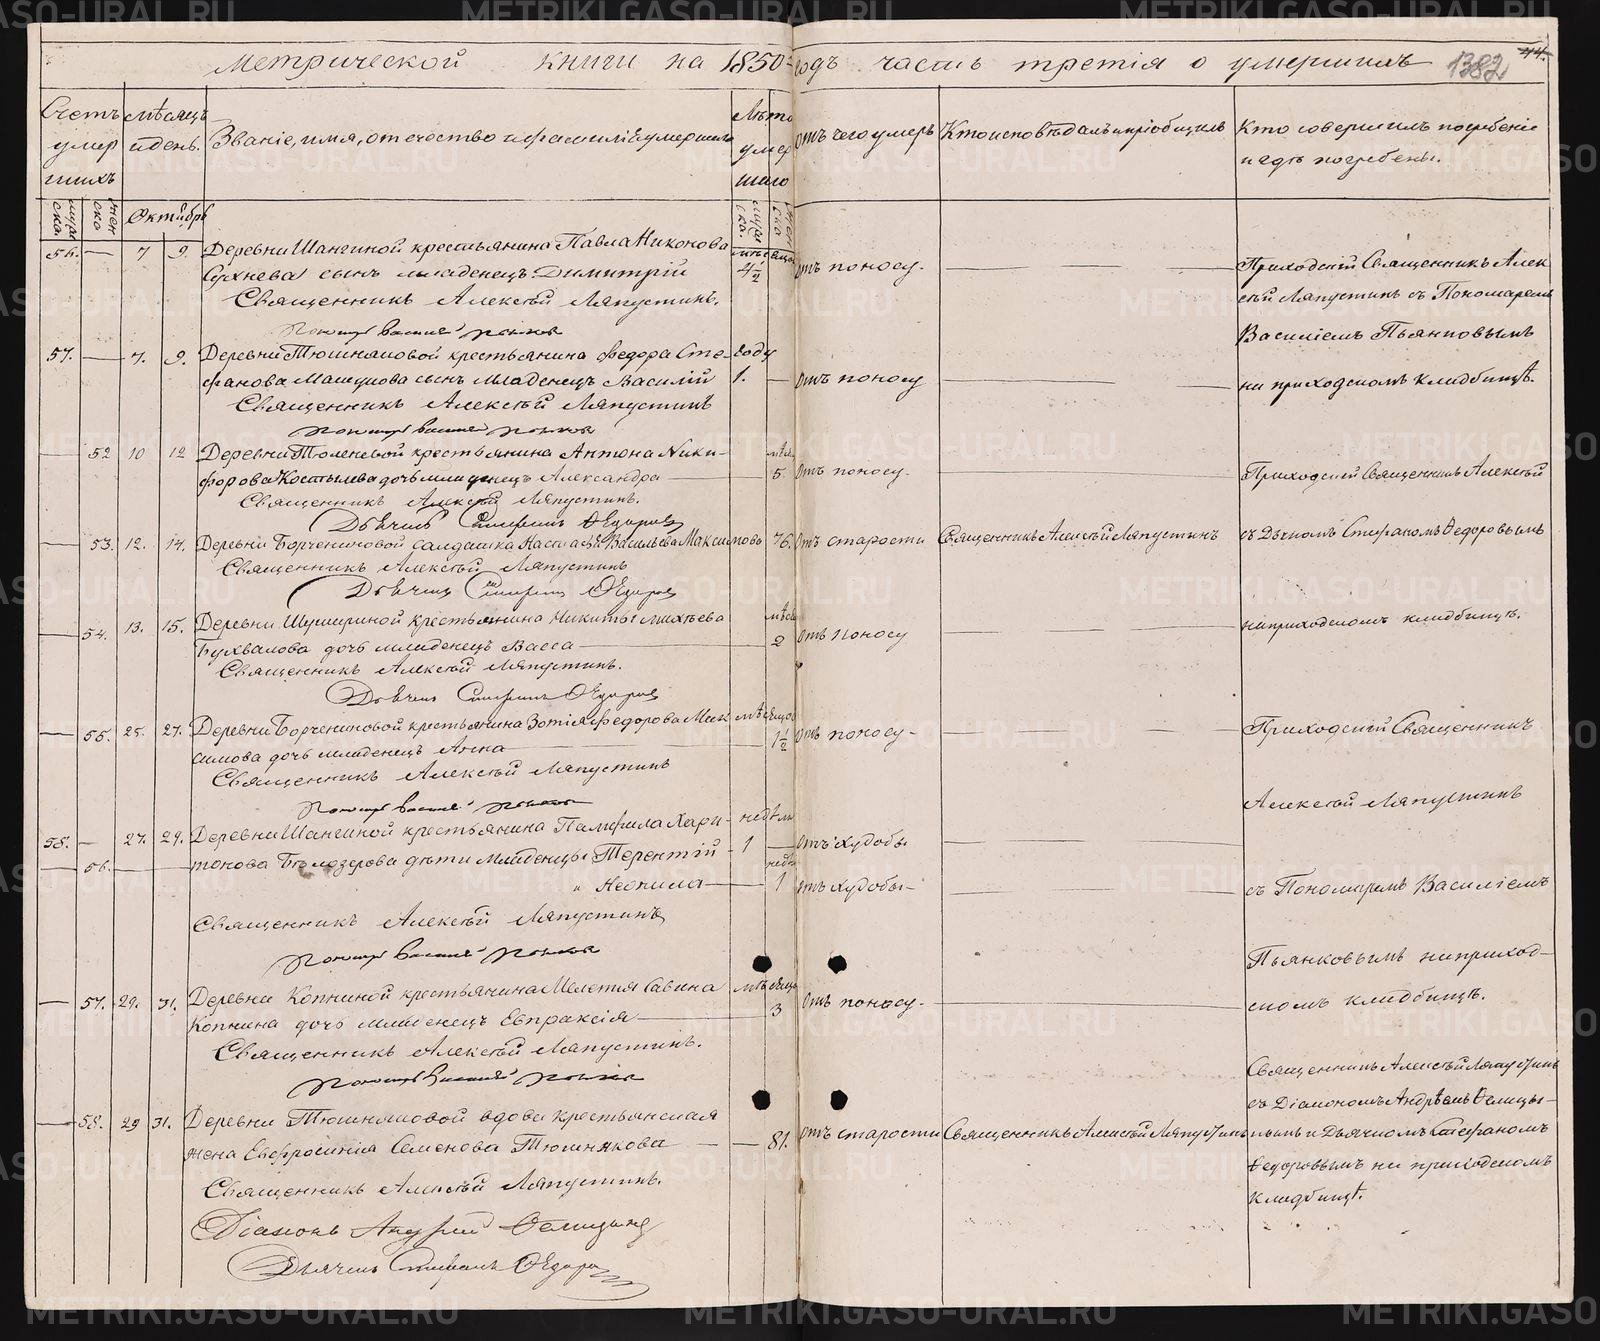 Метрической книги на 1850 годъ часть третія о умершихъ
1382
44.
Счетъ умершихъ
мѣсяцъ и день.
Званіе, имя, отчество и фамилія умершаго
Лѣта умершаго
Отъ чего умеръ
Кто исповѣдалъ и пріобщилъ
Кто совершилъ погребеніе
и гдѣ погребены.
Октябрь
56. — 7 9. Деревни Шангиной крестьянина Павла Никонова
сынъ младенецъ Димитрій 4½ Отъ поносу.
Священникъ Алексѣй Ляпустинъ.
Приходскій Священникъ Алек
сѣй Ляпустинъ съ Пономаремъ
Василіемъ Пьянковымъ
57. — 7. 9. Деревни Тюшняковой крестьянина Федора Сте- году
фанова сынъ младенецъ Василій 1. — Отъ поносу
на приходскомъ кладбищѣ.
Священникъ Алексѣй Ляпустинъ
— 52 10 12 Деревни крестьянина Антона Ники-
форова Костылева дочь младенецъ Александра 5. Отъ поносу.
Приходскій Священникъ Алексѣй
Священникъ Алексѣй Ляпустинъ.
Дьячекъ Стефанъ Федоровъ
— 53. 12. 14. Деревни Борчениновой солдатка Настасья Васильева Максимова 76. Отъ старости Священникъ Алексѣй Ляпустинъ съ Дьячкомъ Стефаномъ Федоровымъ
Священникъ Алексѣй Ляпустинъ
Дьячекъ Стефанъ Федоровъ
— 54. 13. 15. Деревни крестьянина Никиты Михѣева
Бухвалова дочь младенецъ Васса 2 Отъ поносу
на приходскомъ кладбищѣ.
Священникъ Алексѣй Ляпустинъ.
Дьячекъ Стефанъ Федоровъ
— 55. 25. 27. Деревни Борчениновой крестьянина Зотія Федорова Мак мѣсяцовъ
симова дочь младенецъ Анна 1½ Отъ поносу.
Приходскій Священникъ
Священникъ Алексѣй Ляпустинъ
Алексѣй Ляпустинъ
58. — 27. 29. Деревни Шангиной крестьянина Памфила Хари- недѣли
— 56. тонова Бѣлозерова дѣти младенцы Терентій 1 — Отъ худобы
" Неонила 1 Отъ худобы
съ Пономаремъ Василіемъ
Священникъ Алексѣй Ляпустинъ
Пьянковымъ на приход-
— 57. 29. 31. Деревни Копниной крестьянина Мелетія Савина мѣсяца
Копнина дочь младенецъ Евпраксія 3 Отъ поносу.
скомъ кладбищѣ.
Священникъ Алексѣй Ляпустинъ.
Священникъ Алексѣй Ляпустинъ
съ Діакономъ Андреемъ
— 58. 29 31. Деревни Тюшняковой вдова крестьянская
жена Евфросинія Семенова Тюшнякова — 81. Отъ старости Священникъ Алексѣй Ляпустинъ
и Дьячкомъ Стефаномъ
Федоровымъ на приходскомъ
кладбищѣ.
Священникъ Алексѣй Ляпустинъ.
Діаконъ Андрей
Дьячекъ Стефанъ Федоровъ
METRIKI.GASO-URAL.RU